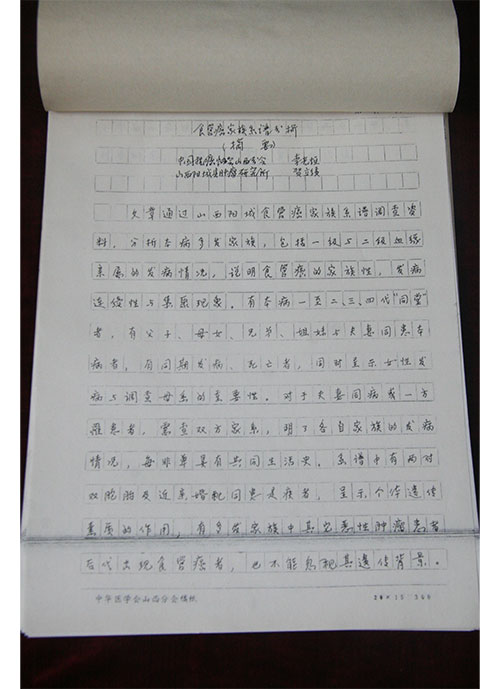 食管癌家族系谱分析
(摘要)
中国抗癌协会山西分会 李先恒
山西阳城县肿瘤研究所 贺立绩
文章通过山西阳城食管癌家族系谱调查资
料，分析本病多发家族，包括一级与二级血缘
亲属的发病情况，说明食管癌的家族性，发病
连续性与集聚现象。有本病一至二、三、四代“同堂”
者，有父子、母女、兄弟、姐妹与夫妻同患本
病者，有同期发病、死亡者，同时显示女性发
病与调查母系的重要性。对于夫妻同病或一方
罹患者，需查双方家系，明了各自家族的发病
情况，每非单具有共同生活史。系谱中有两对
双胞胎及近亲婚配同患是疾者，呈示个体遗传
素质的作用，有多发家族中其它恶性肿瘤患者
后代出现食管癌者，也不能忽视其遗传背景。
中华医学会山西分会稿纸
20×15 300